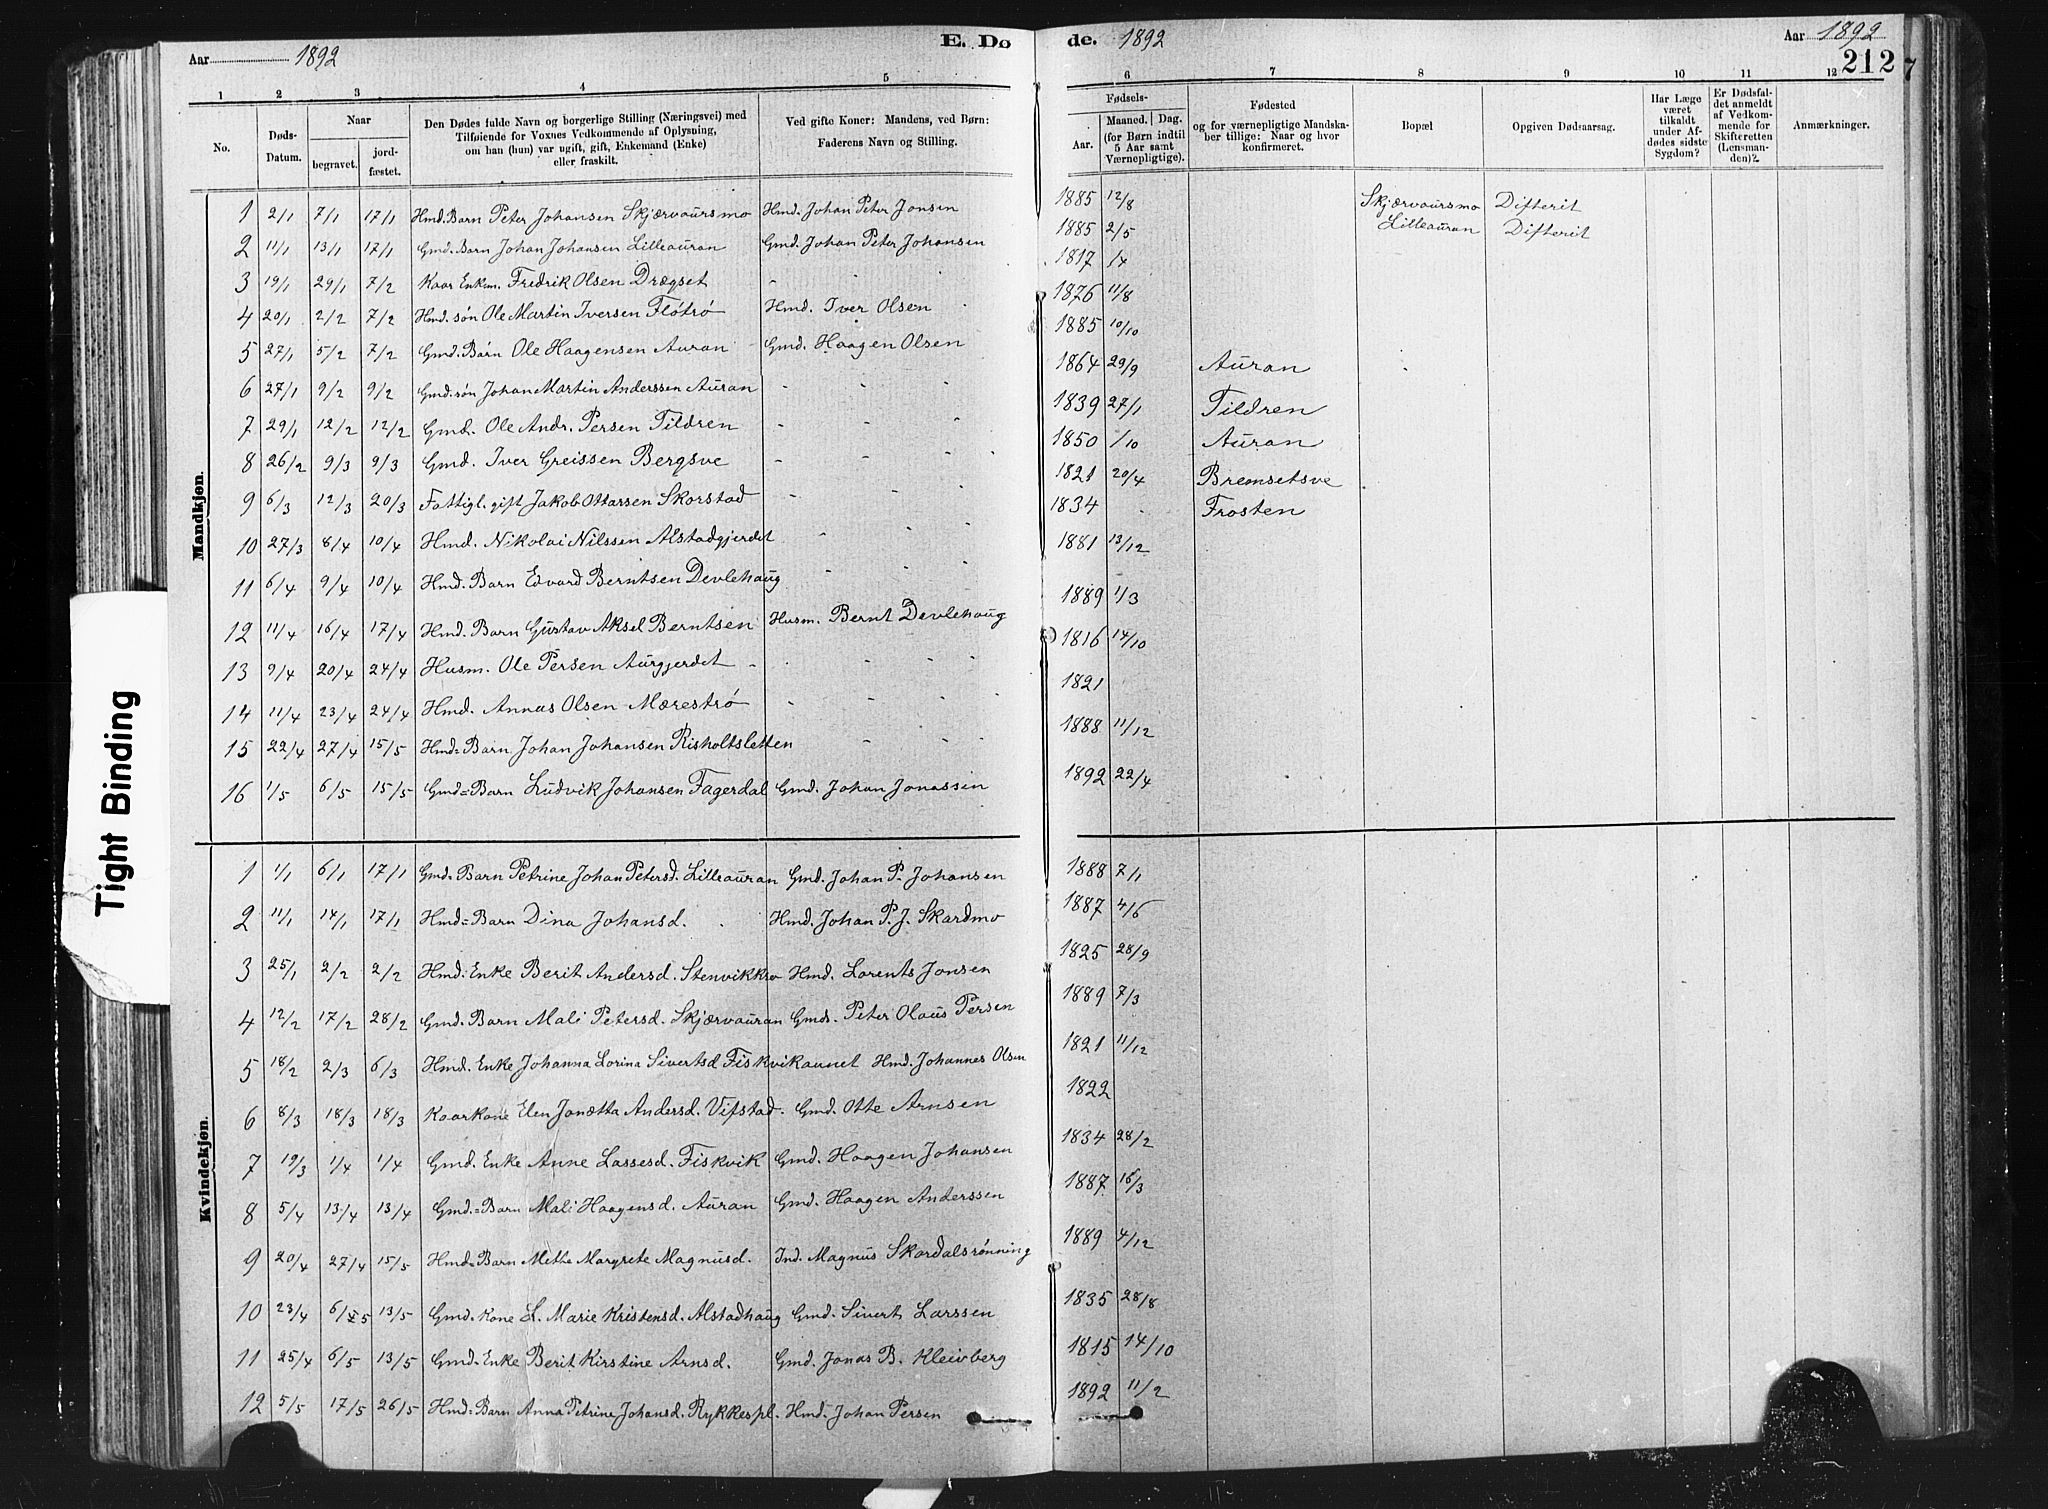 Aar 1892 E. Dø de. 1892 Aar 1892
212
1 2 3 4 5 6 7 8 9 10 11 12
No.
Døds-Datum.
Naar
begravet.
jord-fæstet.
Den Dødes fulde Navn og borgerlige Stilling (Næringsvei) med
Tilføiende for Voxnes Vedkommende af Oplysning,
om han (hun) var ugift, gift, Enkemand (Enke)
eller fraskilt.
Ved gifte Koner: Mandens, ved Børn:
Faderens Navn og Stilling.
Fødsels-
Aar.
Maaned. Dag.
(for Børn indtil
5 Aar samt
Værnepligtige).
Fødested
og for værnepligtige Mandska-
ber tillige: Naar og hvor
konfirmeret.
Bopæl.
Opgiven Dødsaarsag.
Har Læge
været
tilkaldt
under Af-
dødes sidste
Sygdom?
Er Dødsfal-
det anmeldt
af Vedkom-
mende for
Skifteretten
(Lensman-
den)?
Anmærkninger.
Mandkjøn.
1 2/1 7/1 17/1 Hmd. Barn Peter Johansen Skjærvaursmo Hmd. Johan Peter Jonsen 1885 12/8 Skjærvaursmo Difterit
2 11/1 13/1 17/1 Gmd. Barn Johan Johansen Lilleauran Gmd. Johan Peter Johansen 1885 2/5 Lilleauran Difterit
3 19/1 29/1 7/2 Kaar Enkm. Fredrik Olsen Drægset - 1817 /4
4 20/1 2/2 7/2 Hmd. søn Ole Martin Iversen Fløtrø Hmd. Iver Olsen 1876 11/8
5 27/1 5/2 7/2 Gmd. Barn Ole Haagensen Auran Gmd. Haagen Olsen 1885 10/10
6 27/1 9/2 9/2 Gmd. søn Johan Martin Anderssen Auran - - - 1864 29/9 Auran
7 29/1 12/2 12/2 Gmd. Ole Andr. Persen Tildren - - - 1839 27/1 Tildren
8 26/2 9/3 9/3 Gmd. Iver Greissen Bergsve - - - 1850 /10 Auran
9 6/3 12/3 20/3 Fattigl. gift Jakob Ottarsen Skorstad - - - 1821 20/4 Bremsetsve
10 27/3 8/4 10/4 Hmd. Nikolai Nilssen Alstadgjerdet - - - 1834 - Frosten
11 6/4 9/4 10/4 Hmd. Barn Edvard Berntsen Devlehaug - - - 1881 13/12
12 11/4 16/4 17/4 Hmd. Barn Gustav Aksel Berntsen Husm. Bernt Devlehaug 1889 1/3
13 9/4 20/4 24/4 Husm. Ole Persen Aurgjerdet - - - 1816 14/10
14 11/4 23/4 24/4 Hmd. Annas Olsen Mærestrø - - - 1821
15 22/4 27/4 15/5 Hmd= Barn Johan Johansen Risholtsletten - - 1888 11/12
16 1/5 6/5 15/5 Gmd= Barn Ludvik Johansen Fagerdal Gmd. Johan Jonassen 1892 22/4
Kvindekjøn.
1 1/1 6/1 17/1 Gmd= Barn Petrine Johan Petersd. Lilleauran Gmd. Johan P. Johansen 1888 7/1
2 11/1 14/1 17/1 Hmd= Barn Dina Johansd. Hmd. Johan P. J. Skardmo 1887 4/6
3 25/1 2/2 2/2 Hmd. Enke Berit Andersd. Stenvikkro Hmd. Lorents Jonsen 1825 28/9
4 12/2 17/2 28/2 Gmd= Barn Mali Petersd. Skjærvauran Gmd. Peter Olaus Persen 1889 7/3
5 18/2 2/3 6/3 Hmd. Enke Johanna Lorina Sivertsd Fiskvikaunet Hmd. Johannes Olsen 1821 11/12
6 8/3 18/3 18/3 Kaarkone Elen Jonetta Andersd. Vifstad. Gmd. Otte Arnsen 1822
7 19/3 1/4 1/4 Gmd. Enke Anne Lassesd. Fiskvik Gmd. Haagen Johansen 1834 28/2
8 5/4 13/4 13/4 Gmd.= Barn Mali Haagensd. Auran Gmd. Haagen Anderssen 1887 16/3
9 20/4 27/4 15/5 Hmd= Barn Methe Margrete Magnusd. Ind. Magnus Skardalsrønning 1889 4/12
10 23/4 6/5 13/5 Gmd. Kone L. Marie Kristensd. Alstadhaug Gmd. Sivert Larssen 1835 28/8
11 25/4 6/5 13/5 Gmd= Enke Berit Kirstine Arnsd. Gmd. Jonas B. Kleivberg 1815 14/10
12 5/5 17/5 26/5 Hmd= Barn Anna Petrine Johansd. Rykkespl. Hmd. Johan Persen 1892 11/2
Tight Binding